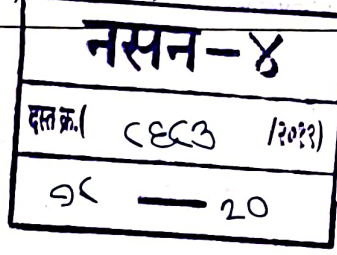 नसन-४
दस्त क्र.( ८६८३ /२०२२)
१८ — २०